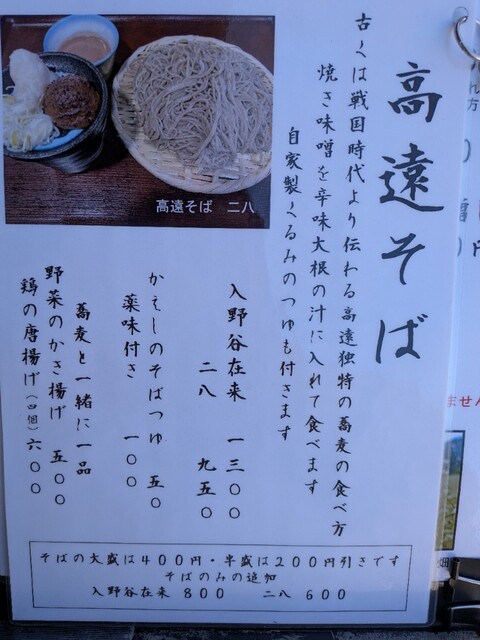 高遠そば
古くは戦国時代より伝わる高遠独特の蕎麦の食べ方
焼き味噌を辛味大根の汁に入れて食べます
自家製くるみのつゆも付きます
高遠そば 二八
入野谷在来 一三〇〇
二八 九五〇
かえしのそばつゆ 五〇
薬味付き 一〇〇
蕎麦と一緒に一品
野菜のかき揚げ 五〇〇
鶏の唐揚げ(四個) 六〇〇
そばの大盛は400円・半盛は200円引きです
そばのみの追加
入野谷在来 800 二八 600
ません
畑